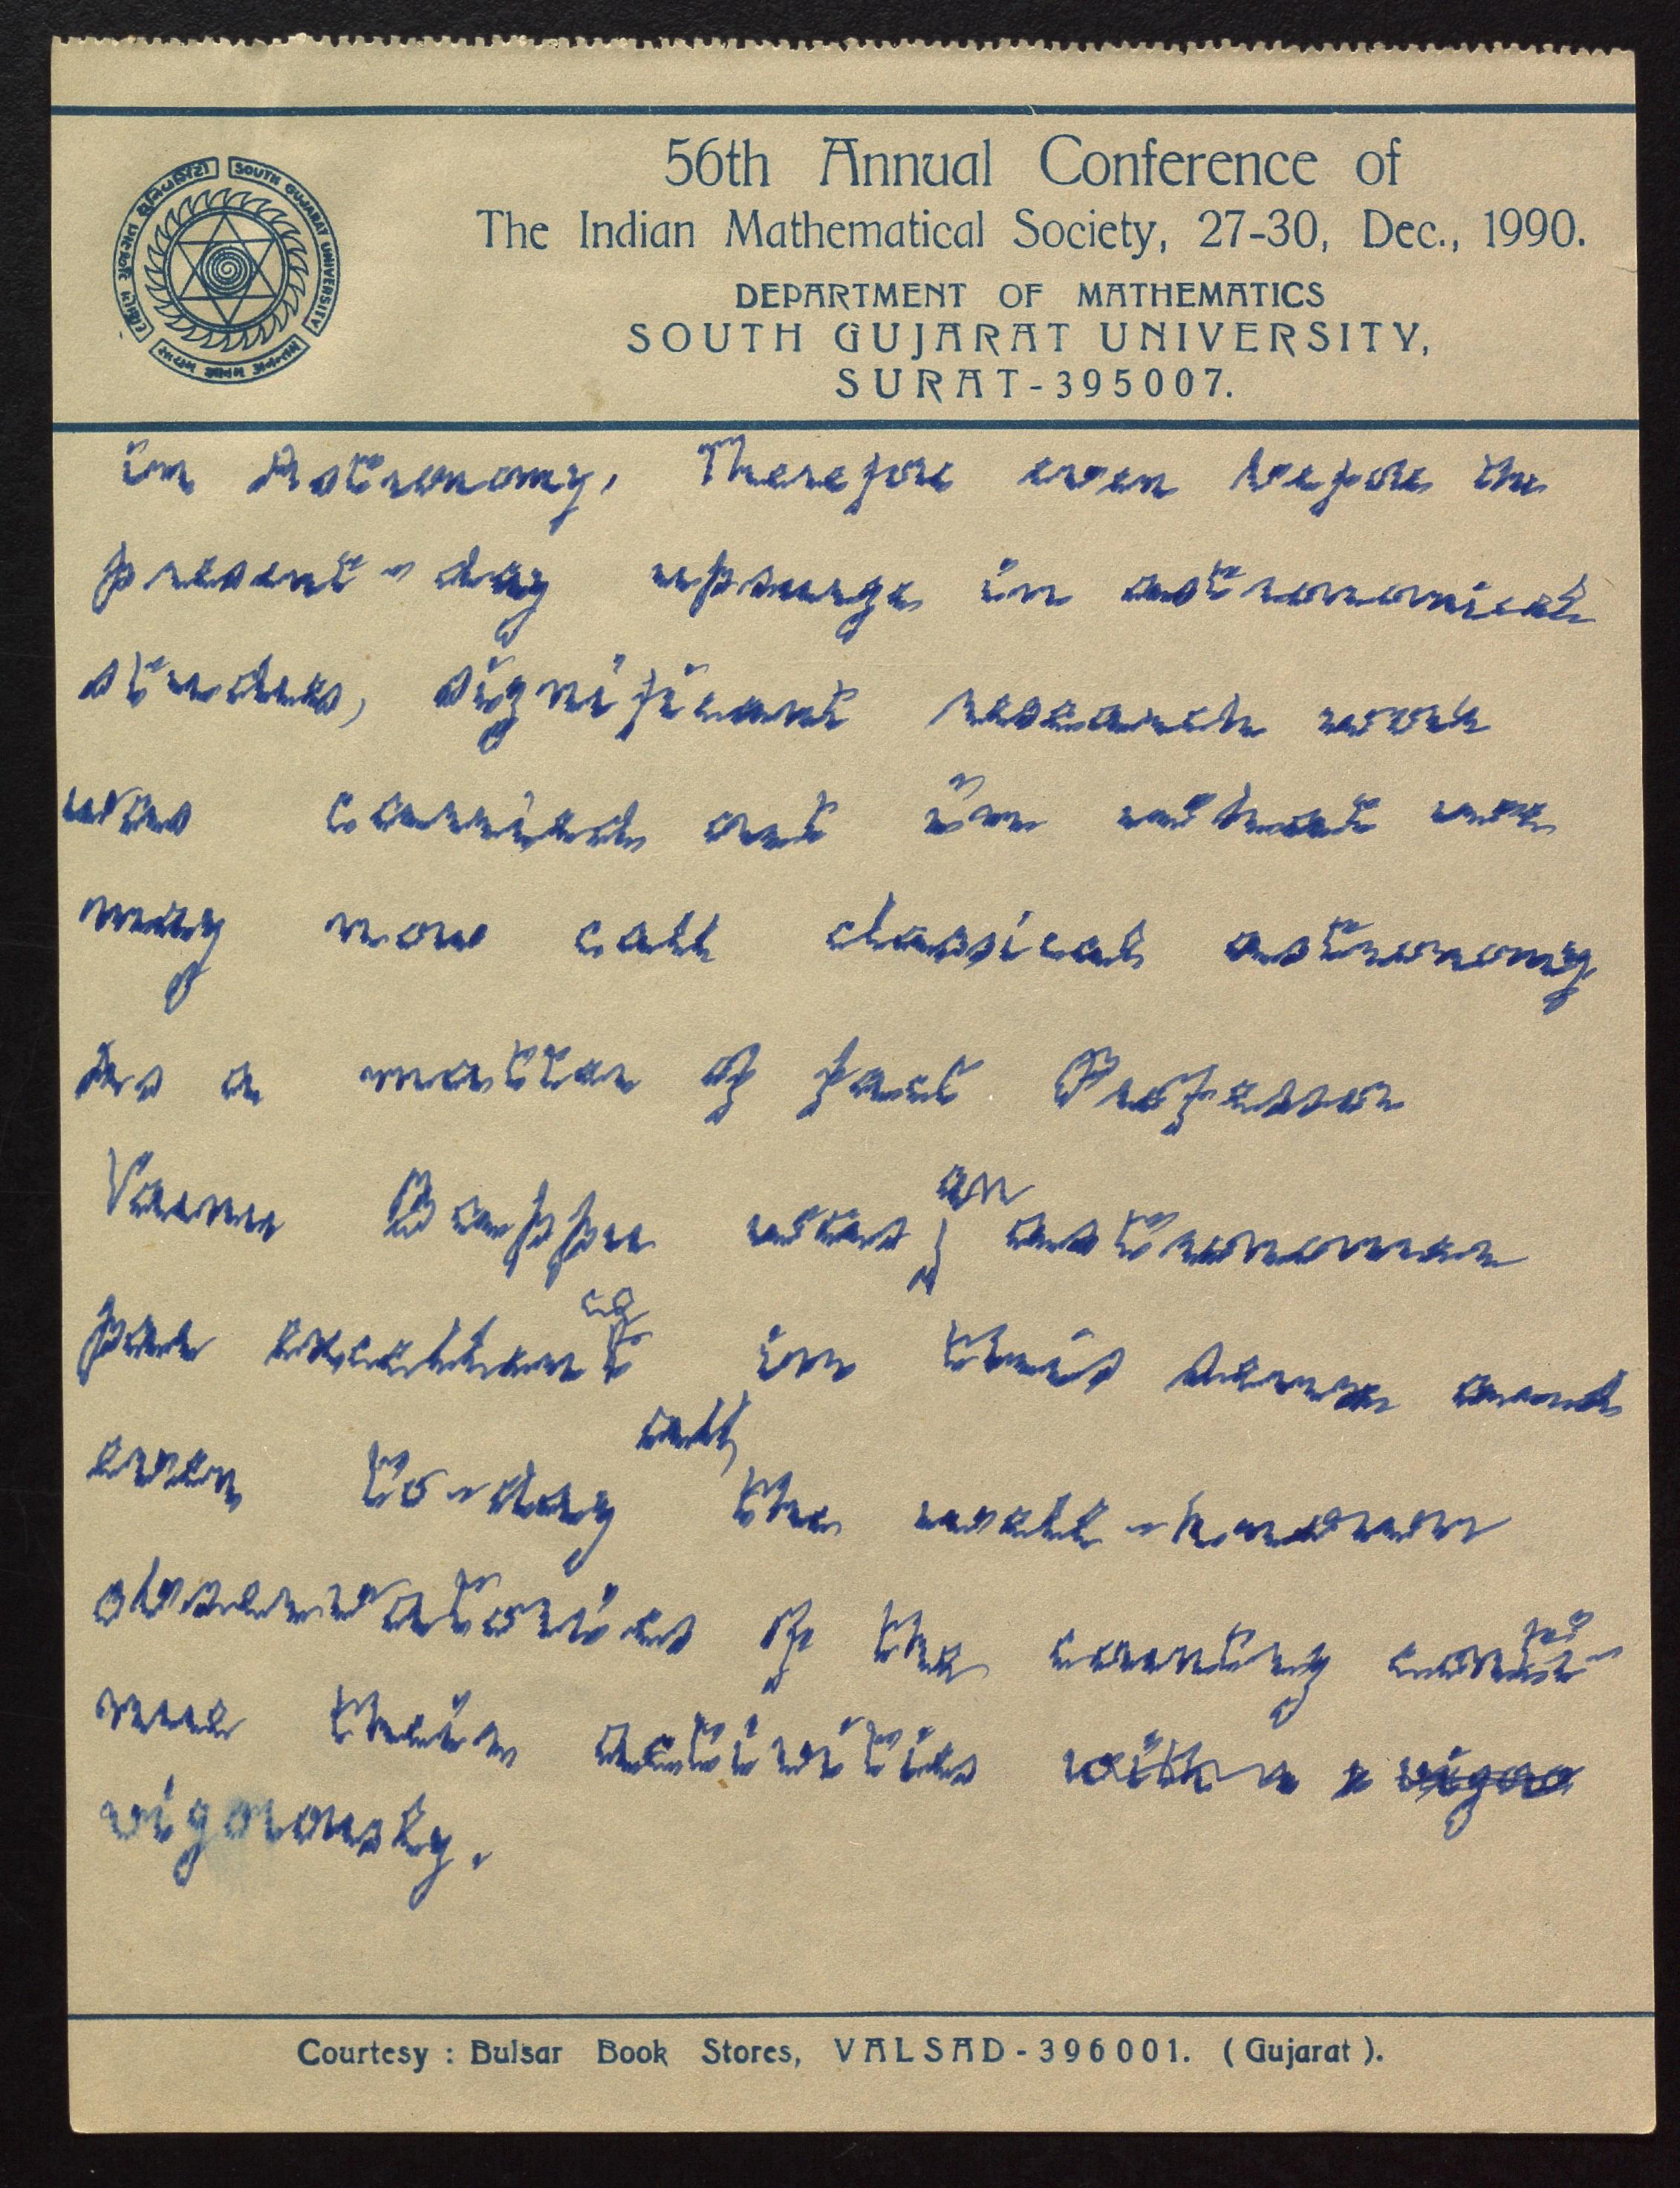 SOUTH GUJARAT UNIVERSITY
56th Annual Conference of
The Indian Mathematical Society, 27-30, Dec., 1990.
DEPARTMENT OF MATHEMATICS
SOUTH GUJARAT UNIVERSITY,
SURAT-395007.
in Astronomy. Therefore even before the
present-day upsurge in astronomical
studies, significant research work
was carried out in what we
may now call classical astronomy.
As a matter of fact Professor
Vainu Bappu was an astronomer
par excellence in this sense and
even to-day all the well-known
observatories of the country conti-
nue their activities with vigou
vigorously.
Courtesy : Bulsar Book Stores, VALSAD-396001. (Gujarat).